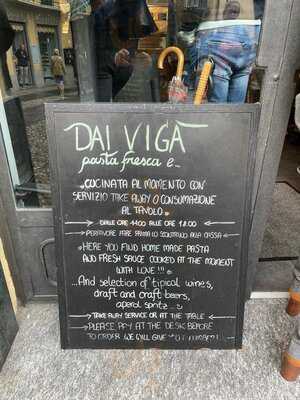 DAI VIGA
pasta fresca e...
CUCINATA AL MOMENTO CON
SERVIZIO TAKE AWAY O CONSUMAZIONE
AL TAVOLO.
DALLE ORE 11:00 ALLE ORE 18:00
PERFAVORE FARE PRIMA LO SCONTRINO ALLA CASSA
HERE YOU FIND HOME MADE PASTA
AND FRESH SAUCE COOKED AT THE MOMENT
WITH LOVE !!!
...And selection of tipical wine's,
draft and craft beers,
aperol spritz ...
TAKE AWAY SERVICE OR AT THE TABLE
PLEASE PAY AT THE DESK BEFORE
TO ORDER WE GIVE YOU A NUMBER!...